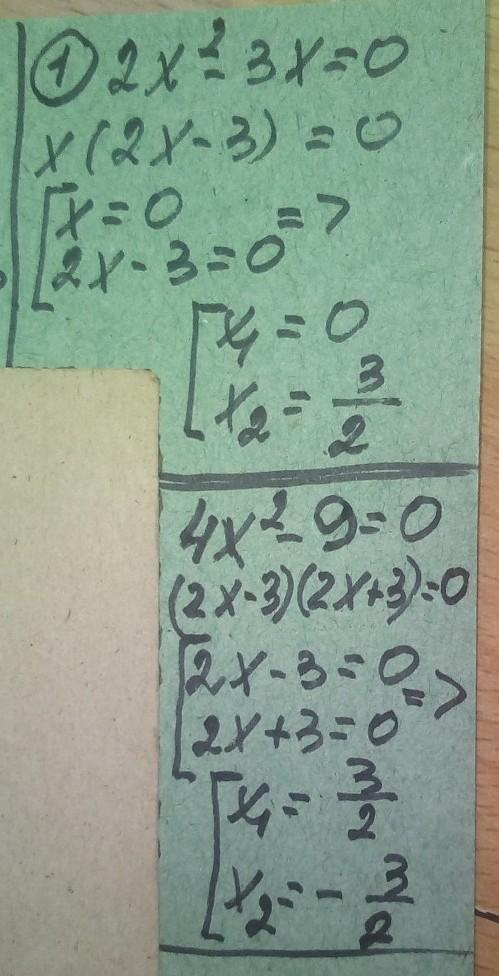 ① 2x² - 3x = 0
x(2x - 3) = 0
[x = 0 =>
[2x - 3 = 0
[x₁ = 0
[x₂ = 3/2
4x² - 9 = 0
(2x-3)(2x+3)=0
[2x - 3 = 0 =>
[2x + 3 = 0
[x₁ = 3/2
[x₂ = - 3/2